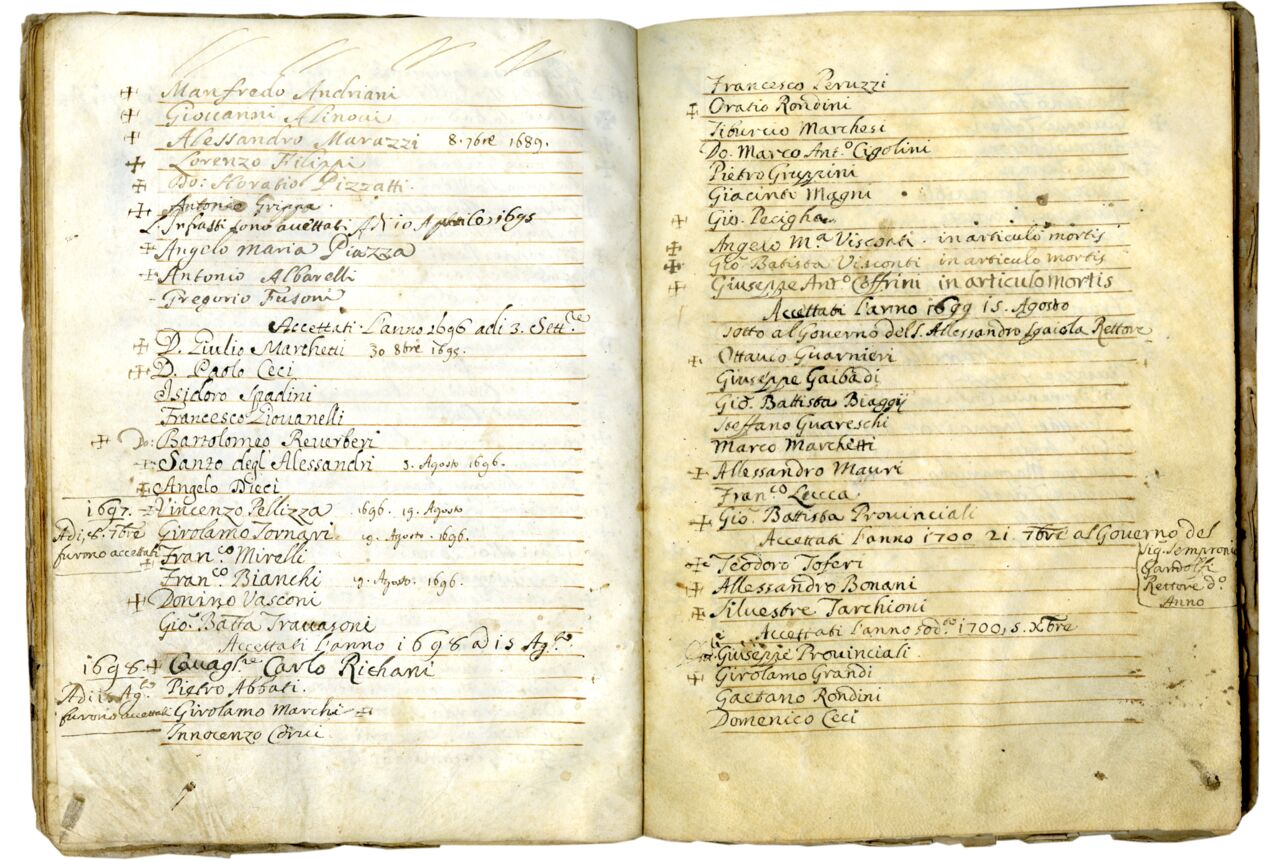 ✠ Manfredo Andriani
✠ Giovanni Alinovi
✠ Alessandro Marazzi 8. 7bre 1689.
✠ Lorenzo Filippi
✠ Do: Horatio Pizzatti.
✠ Antonio Grippa
L'Infratti sono accettati Adi 10 1695
✠ Angelo Maria Piazza
✠ Antonio Albarelli
- Gregorio Fusoni
Accettati L'anno 1696 adi 3. Sett.re
✠ D. Giulio Marchetti 30 8bre 1695.
✠ D. Paolo Ceci
Isidoro Spadini
Francesco Giovanelli
✠ Do: Bartolomeo Reverberi
✠ Santo degl'Alessandri 3. Agosto 1696.
✠ Angelo Dieci
1697. ✠ Vincenzo Pellizza 1696. 19. Agosto
Adi, 8. 7bre Girolamo Fornari 19. Agosto. 1696.
furono accettati ✠ Fran.co Mirelli
Fran.co Bianchi 9. Agosto. 1696.
✠ Donino Vasconi
Gio. Batta Travasoni
Accettati L'anno 1698 a di 15 Ag.to
1698. ✠ Cavag.re Carlo Richani
Adi 15 Ag.to Pietro Abbati.
furono accettati Girolamo Marchi ✠
Innocenzo Corvi
Francesco Peruzzi
✠ Oratio Rondini
Tiburcio Marchesi
Do. Marco Ant.o Cigolini
Pietro Gruzzini
Giacinto Magni
✠ Gio. Pecigha
✠ Angelo M.a Visconti in articulo mortis
✠ Gio. Batista Visconti in articulo mortis
✠ Giuseppe Ant.o Coffrini in articulo mortis
Accettati L'anno 1699 15. Agosto
sotto al Governo del S. Allessandro Rettore
✠ Ottavio Guarnieri
Giuseppe Gaibadi
Gio. Battista Biaggij
Steffano Guareschi
Marco Marchetti
✠ Allessandro Mauri
Fran.co Lucca
✠ Gio. Battista Provinciali
Accettati l'anno 1700 21. 7bre al Governo del
Sig. Sempronio
Gandolfi
Rettore d.o
Anno
✠ Teodoro Toferi
✠ Allessandro Bonani
✠ Silvestre Tarchioni
Accettati l'anno sod.o 1700, 5. Xbre
Giuseppe Provinciali
✠ Girolamo Grandi
Gaetano Rondini
Domenico Ceci